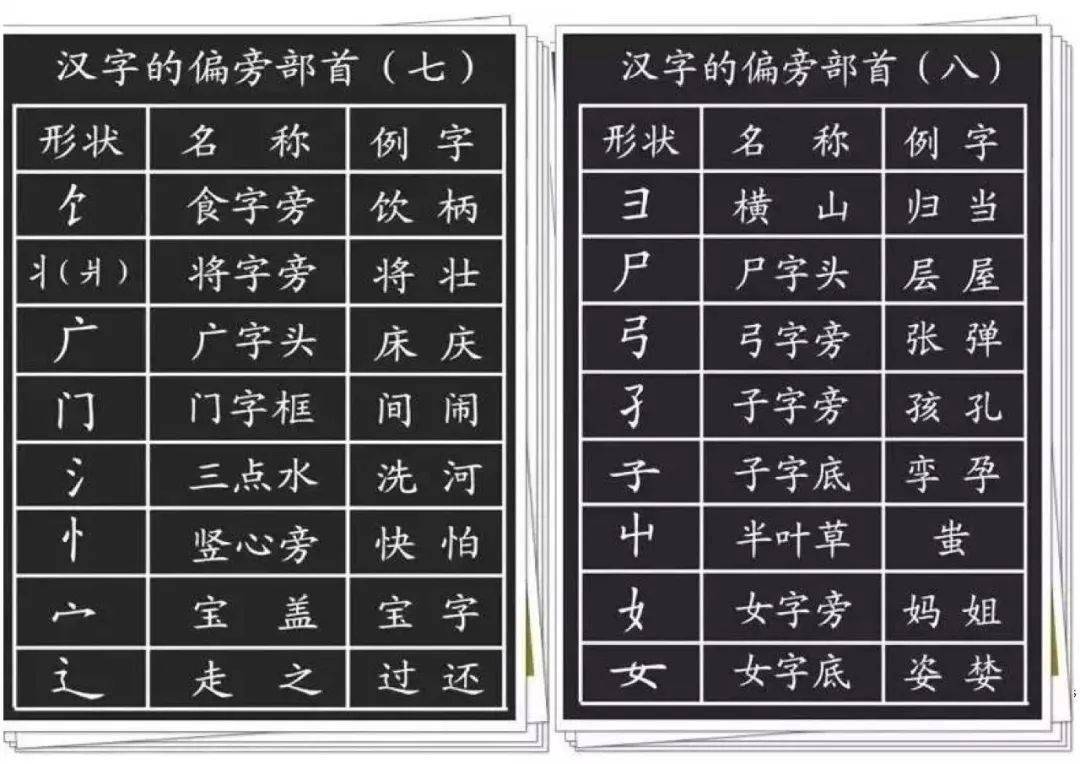 汉字的偏旁部首（七）
形状 名称 例字
饣 食字旁 饮 柄
丬（爿） 将字旁 将 壮
广 广字头 床 庆
门 门字框 间 闹
氵 三点水 洗 河
忄 竖心旁 快 怕
宀 宝盖 宝 字
辶 走之 过 还
汉字的偏旁部首（八）
形状 名称 例字
彐 横山 归 当
尸 尸字头 层 屋
弓 弓字旁 张 弹
孑 子字旁 孩 孔
子 子字底 孪 孕
屮 半叶草 蚩
女 女字旁 妈 姐
女 女字底 姿 婪